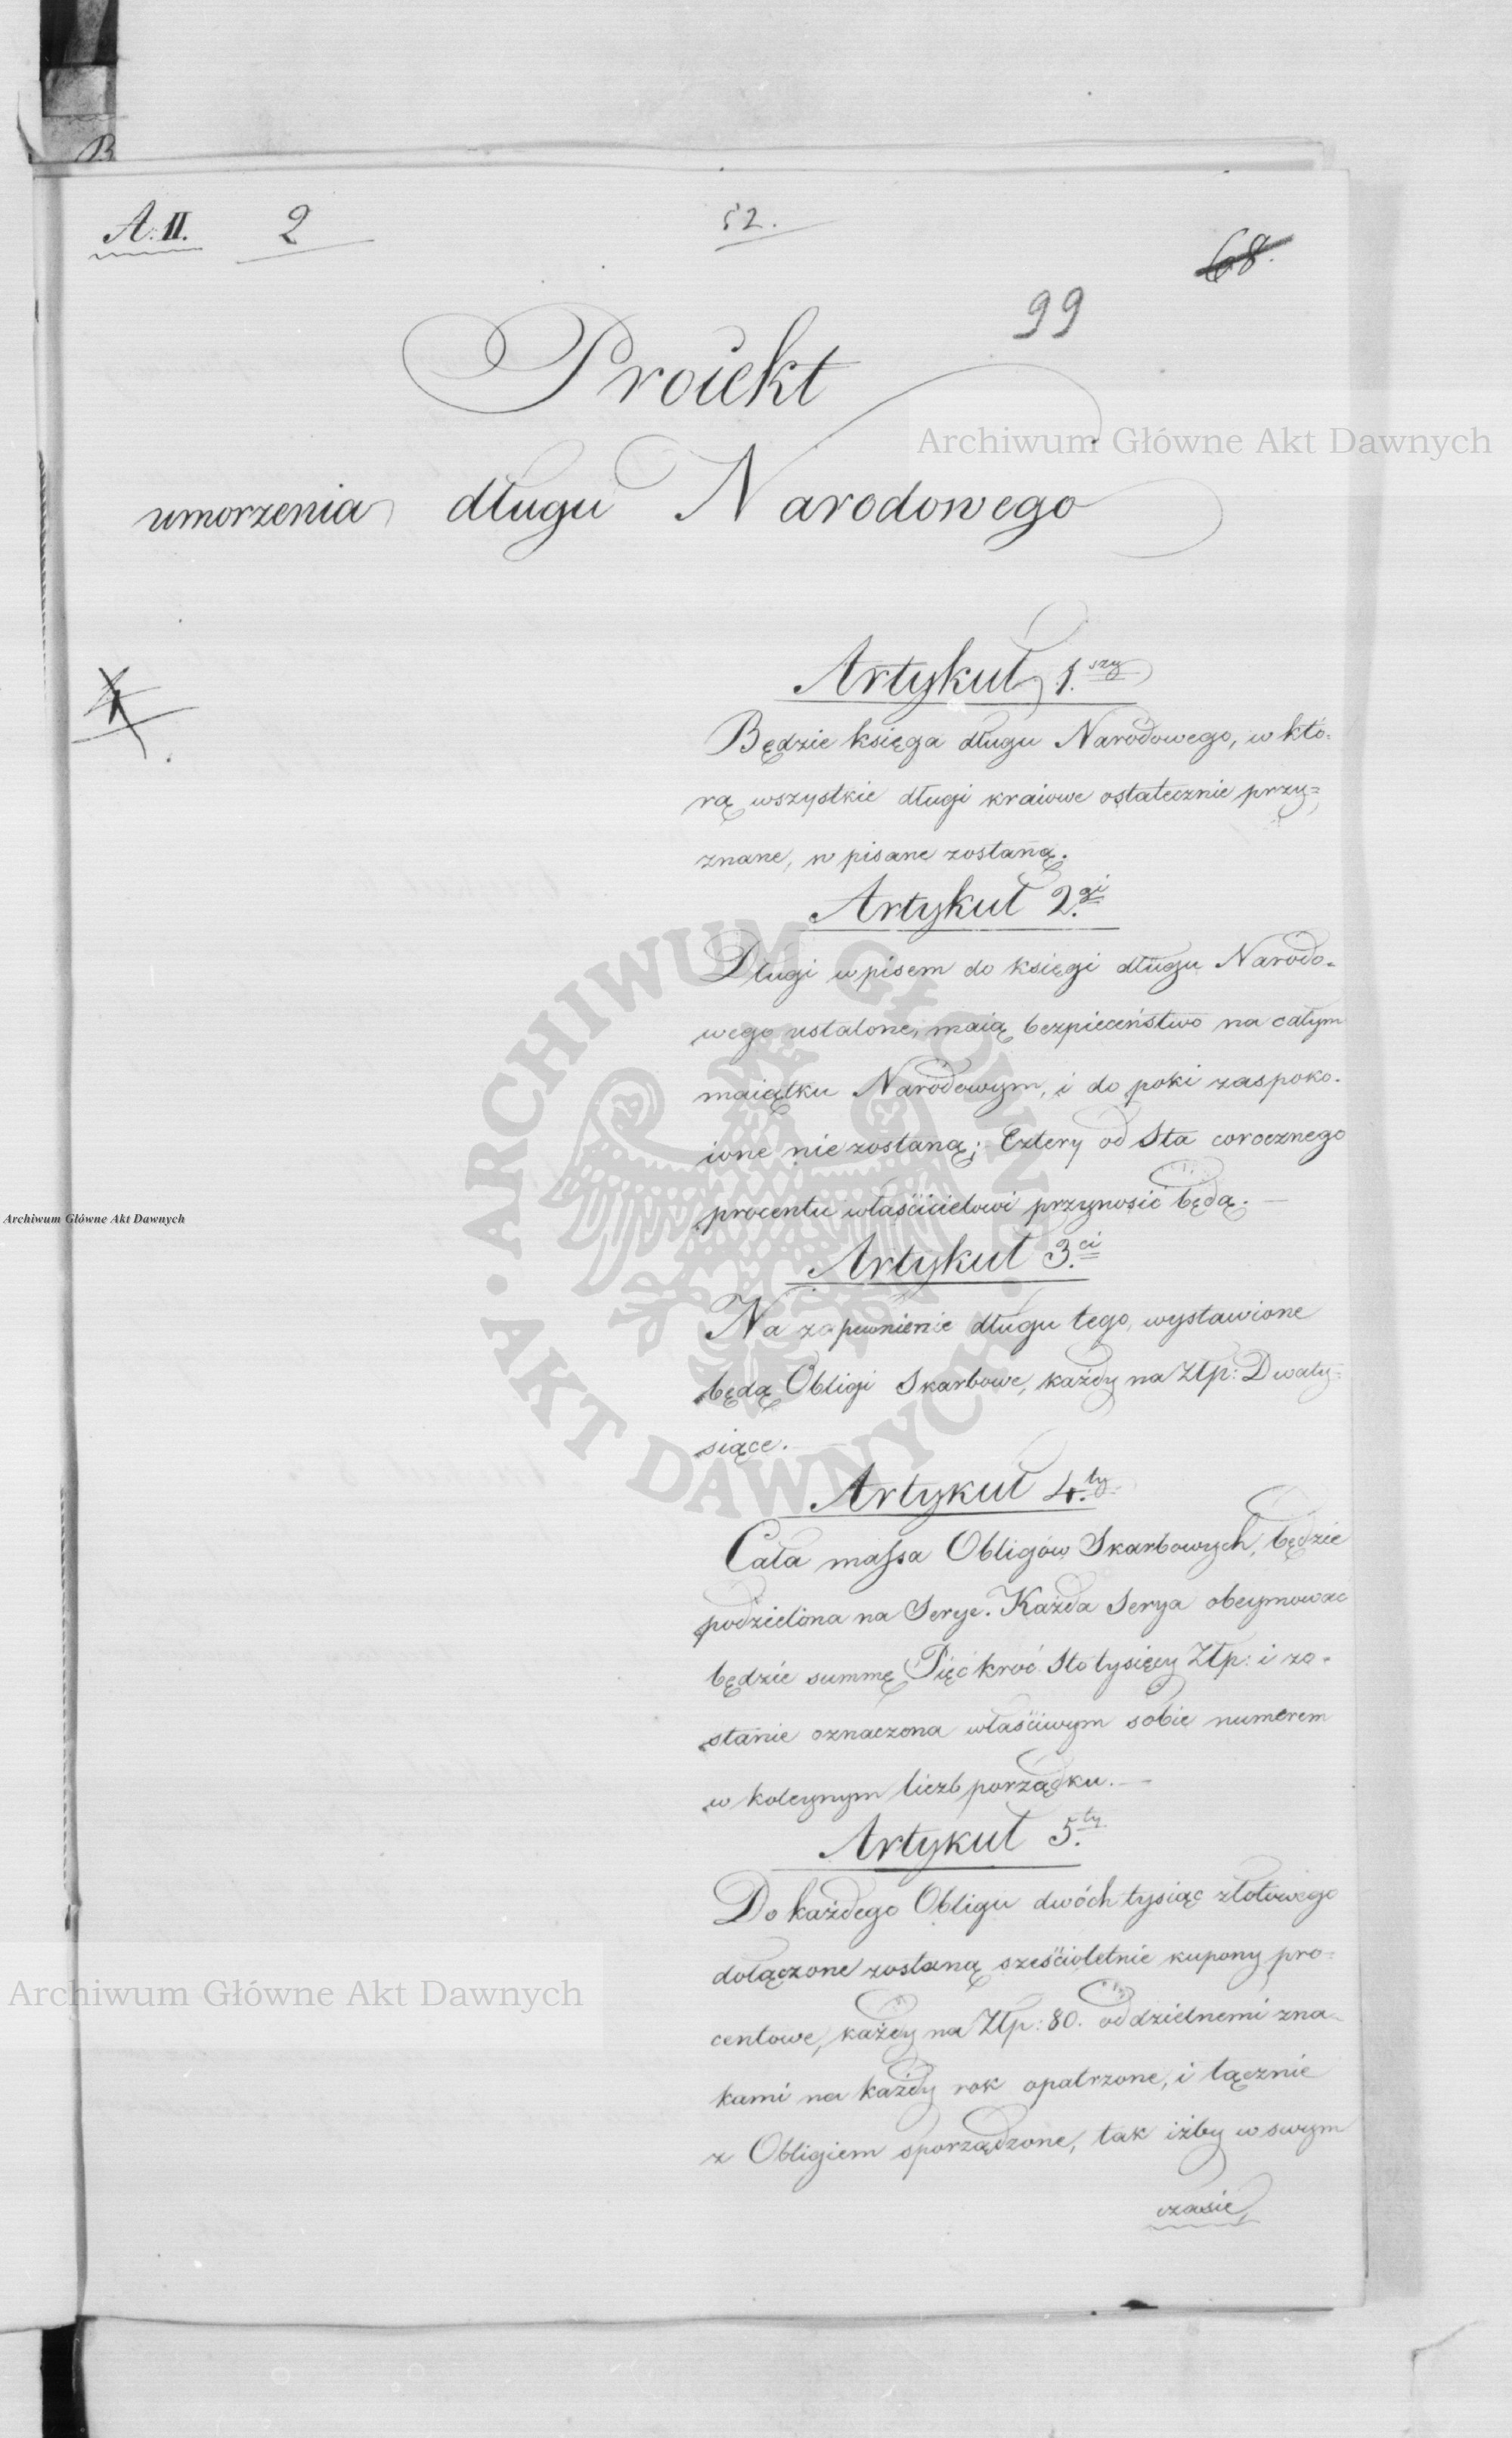 B
A: II. 2 52. 68.
99
Proiekt
Archiwum Główne Akt Dawnych
umorzenia długu Narodowego
Artykuł 1.szy
Będzie księga długu Narodowego, w któ-
rą wszystkie długi kraiowe ostatecznie przy=
znane, w pisane zostaną.
Artykuł 2.gi
Długi wpisem do księgi długu Narodo-
wego ustalone, maią bezpieceństwo na całym
maiątku Narodowym, i do poki zaspoko-
ione nie zostaną; Cztery od Sta corocznego
procentu właścicielowi przynosić będą. —
Archiwum Główne Akt Dawnych
Artykuł 3.ci
Na zapewnienie długu tego, wystawione
będą Obligi Skarbowe, każdy na Złp: Dwaty=
siące.
ARCHIWUM GŁÓWNE • AKT DAWNYCH •
Artykuł 4.ty
Cała massa Obligów Skarbowych, będzie
podzielona na Serye. Każda Serya obeymować
będzie summę Pięćkroć Sto tysięcy Złp: i zo-
stanie oznaczona właściwym sobie numerem
w koleynym liczb porządku. —
Artykuł 5.ty
Do każdego Obligu dwóch tysiąc złotowego
dołączone zostaną sześcioletnie kupony pro-
Archiwum Główne Akt Dawnych
centowe, każdy na Złp: 80. oddzielnemi zna-
kami na każdy rok opatrzone, i łącznie
z Obligiem sporządzone, tak iżby w swym
czasie,